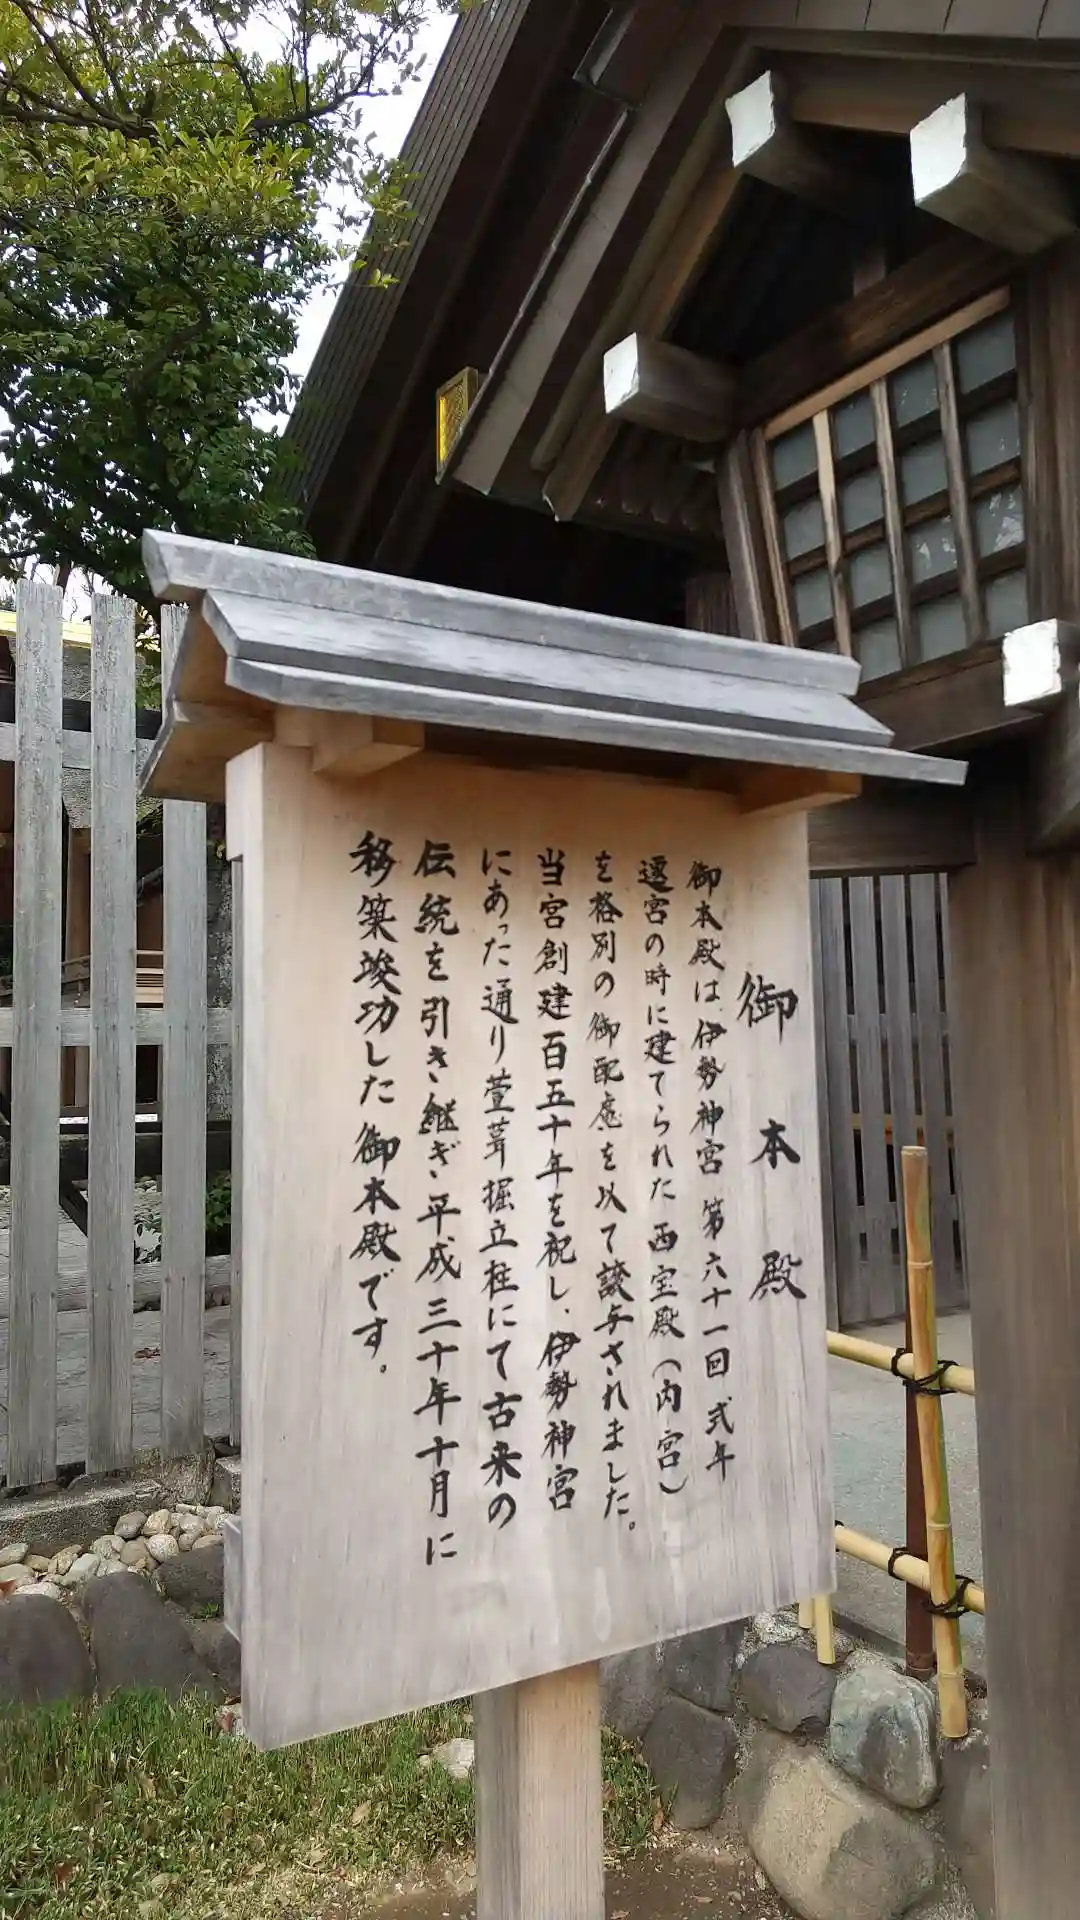 御本殿
御本殿は、伊勢神宮 第六十一回 式年
遷宮の時に建てられた 西宝殿（内宮）
を格別の御配慮を以て譲与されました。
当宮創建百五十年を祝し、伊勢神宮
にあった通り萱葺掘立柱にて古来の
伝統を引き継ぎ平成三十年十月に
移築竣功した御本殿です。